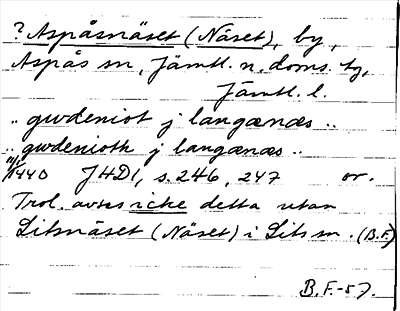 ? Aspåsnäset (Näset), by,
Aspås sn, Jämtl. n. doms. tg,
Jämtl. l.
.. gwdeniot j langænæs ..
.. gwdenioth j langænæs ..
1440 JHD1, s. 246, 247 or.
Trol. avses icke detta utan
Litsnäset (Näset) i Lits sn. (B.F.)
B.F.-57.